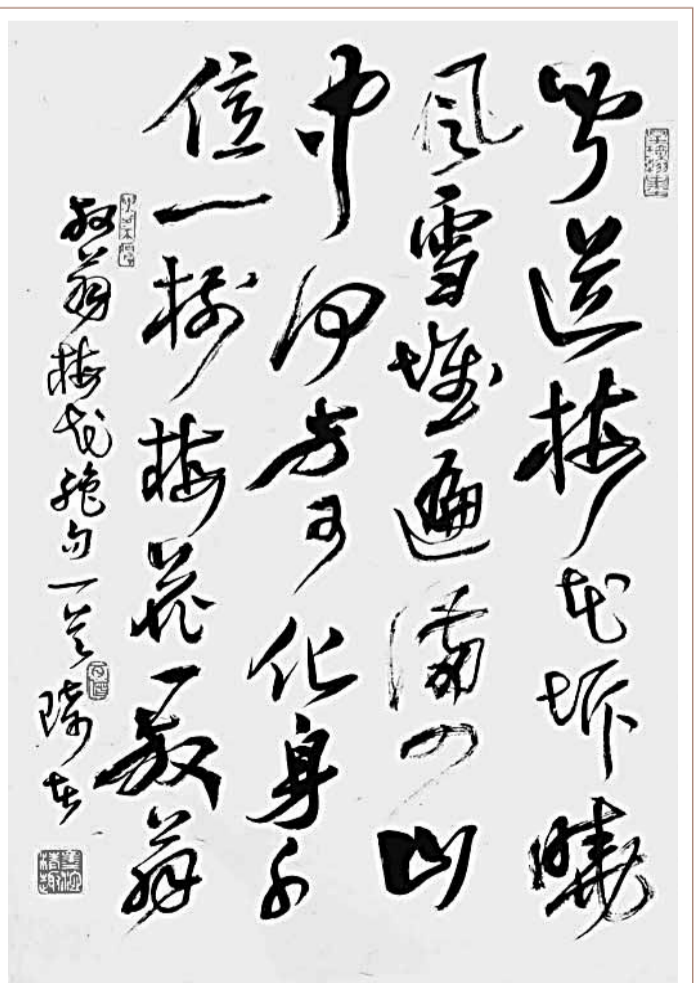 聞道梅花坼曉
風雪堆遍滿四山
中何方可化身千
億一樹梅花一放翁
放翁梅花絕句一首